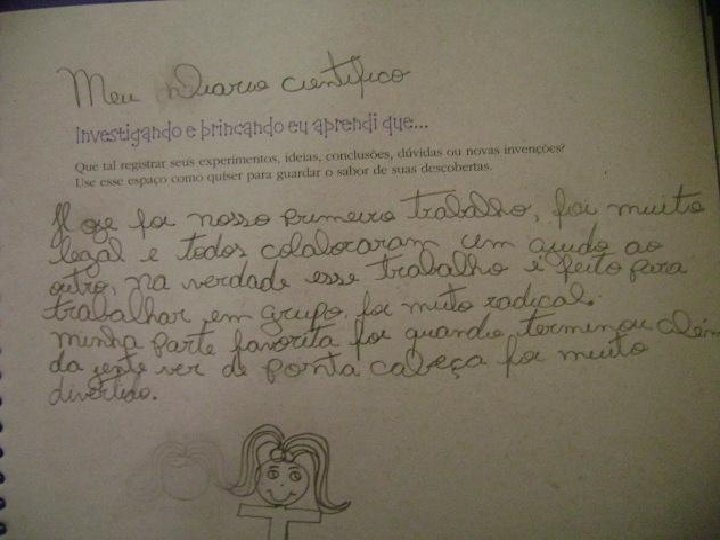 Meu Diario cientifico
Investigando e brincando eu aprendi que...
Que tal registrar seus experimentos, ideias, conclusões, dúvidas ou novas invenções?
Use esse espaço como quiser para guardar o sabor de suas descobertas.
Hoje foi nosso primeiro trabalho, foi muito
legal e todos colaboraram um ajudo ao
outro, na verdade esse trabalho é feito para
trabalhar em grupo. foi muto radical.
minha parte favorita foi quando terminou além
da gente ver de ponta cabeça foi muito
divertido.